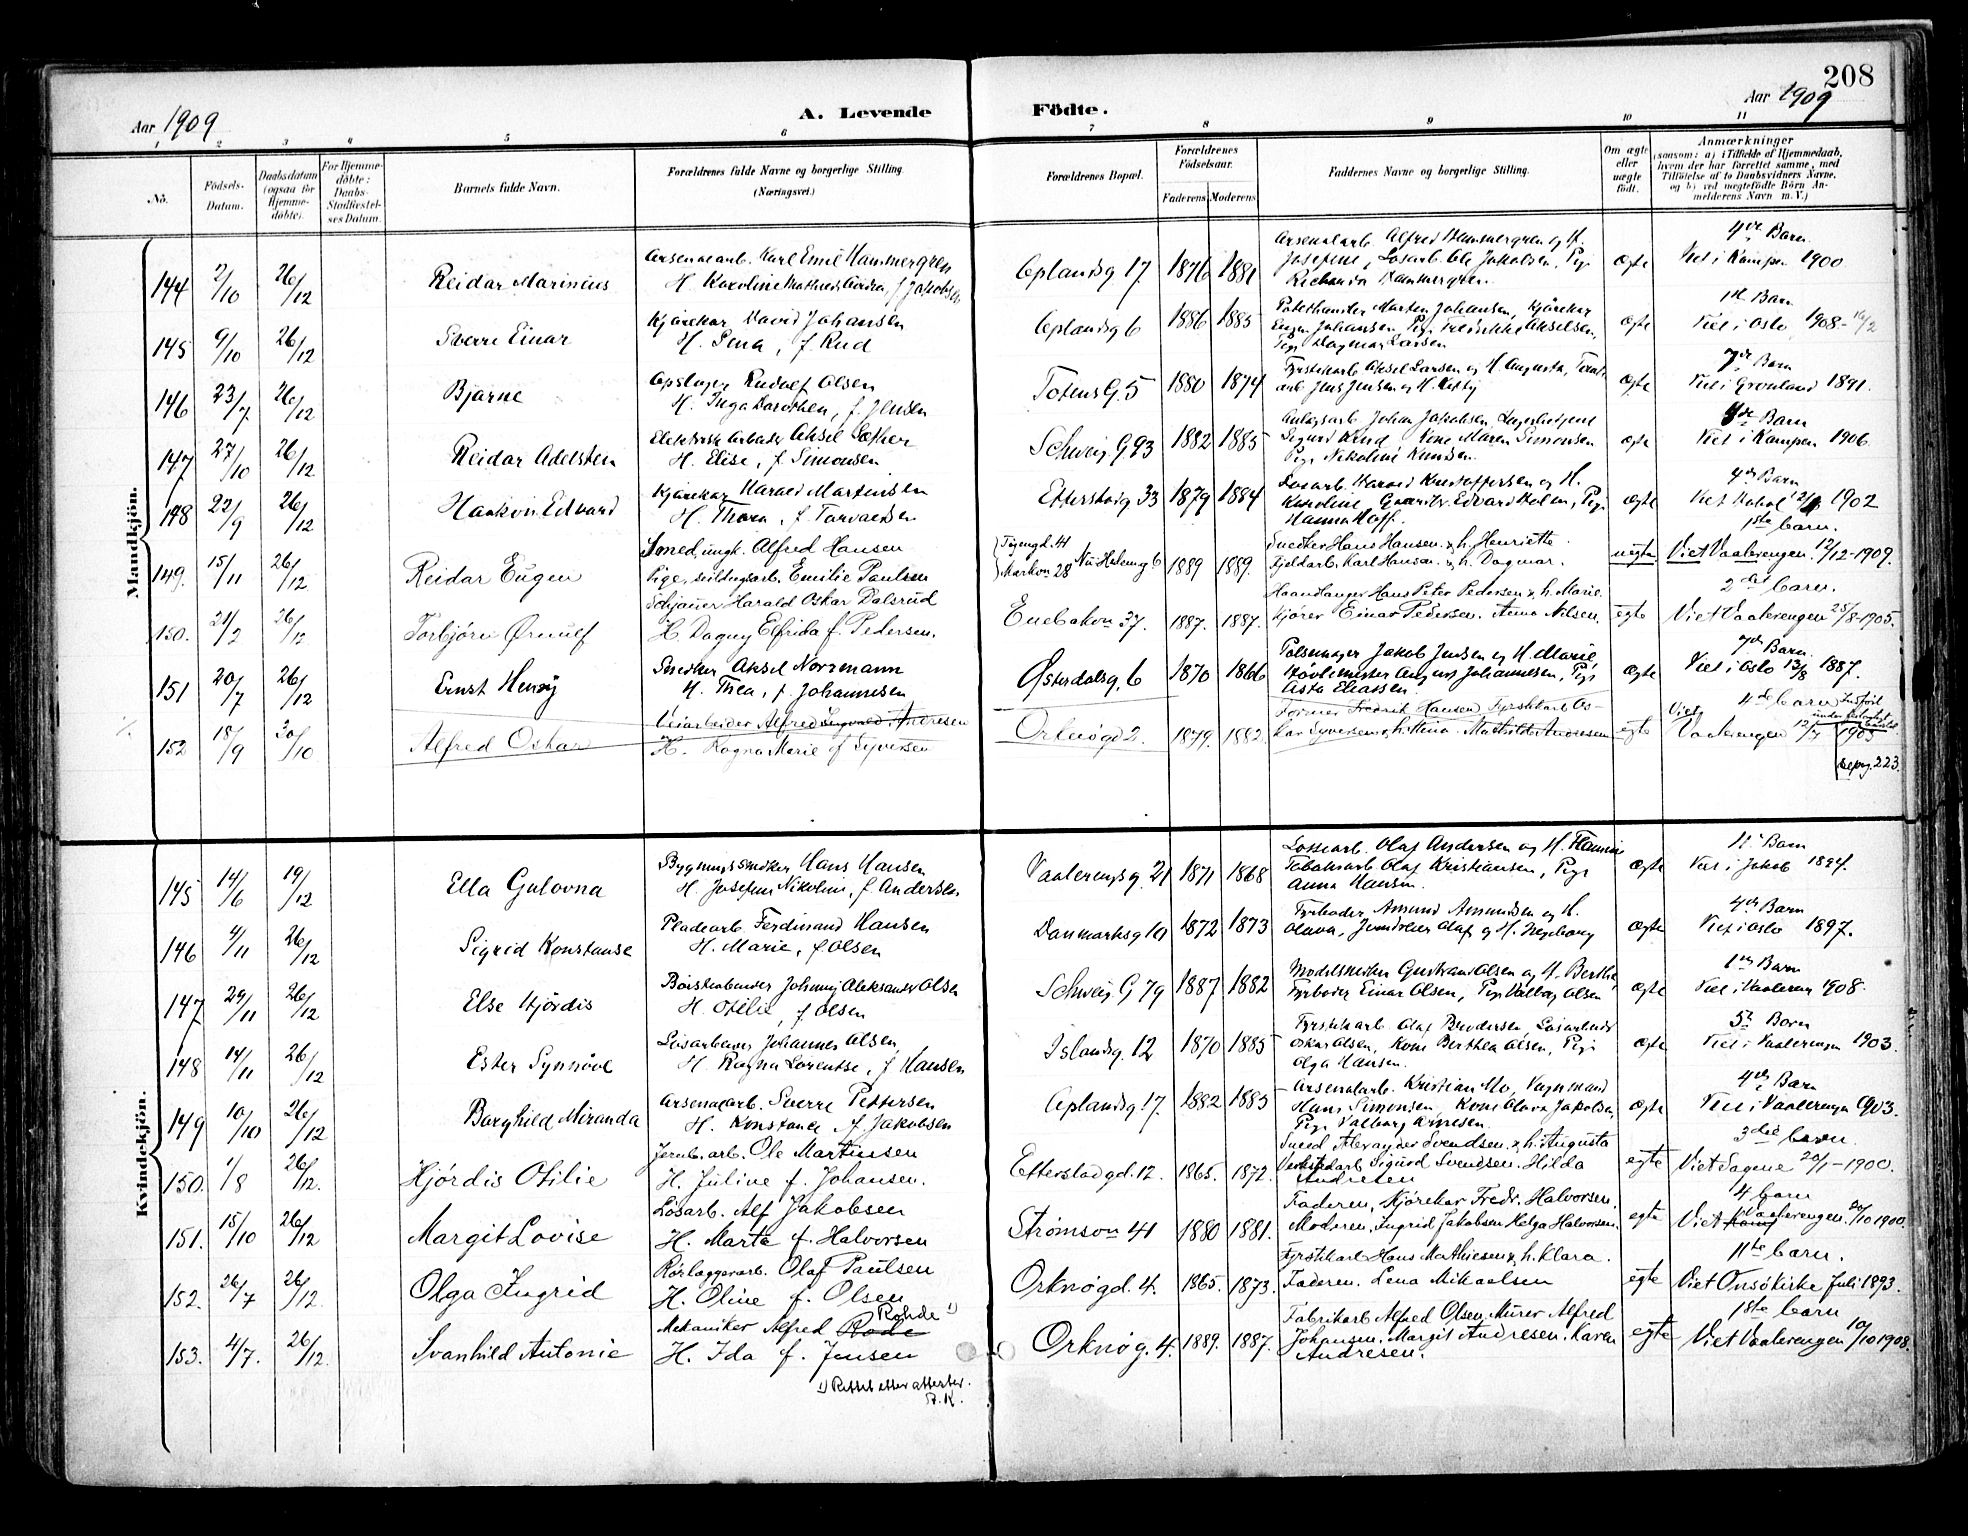 208
Aar 1909
A. Levende
Födte.
Aar 1909
1 2 3 4 5 6 7 8 9 10 11
No.
Födsels-
Datum.
Daabsdatum
(ogsaa for
Hjemme-
döbte).
For Hjemme-
döbte:
Daabs-
Stadfæstel-
ses Datum.
Barnets fulde Navn.
Forældrenes fulde Navne og borgerlige Stilling.
(Næringsvei.)
Forældrenes Bopæl.
Forældrenes
Födselsaar.
Faderens Moderens
Faddernes Navne og borgerlige Stilling.
Om ægte
eller
uægte
födt.
Anmærkninger
(saasom: a) i Tilfælde af Hjemmedaab,
hvem der har forrettet samme, med
Tilföielse af to Daabsvidners Navne,
og b) ved uægtefödte Börn An-
melderens Navn m. V.)
Mandkjön.
Arsenalarb. Karl Emil Hammergren
144 2/10 26/12 Reidar Marinius H. Karoline Mathilde f. Jakobsen
Oplandsg 17. 1876 1881
Arsenalarb. Alfred Hammergren og H.
Josefine, Losarb. Ole Jakobsen, Pige
Richarda Hammergren.
ægte
4de Barn
Viet i Kampen 1900
Kjørekar David Johansen
145 9/10 26/12 Sverre Einar H. Lena, f. Rud
Oplandsg 6 1886 1885
Marten Johansen, Kjørekar
Eugen Johansen, Pige Fredrikke Akselsen,
Pige Dagmar Larsen
ægte
1ste Barn
Viet i Oslo 1908 - 16/2
Opslager Rudolf Olsen
146 23/7 26/12 Bjarne H. Inga Dorothea, f. Jensen
Totens G. 5 1880 1874
Fyrstikarb Aksel Larsen og H. Augusta,
arb Jens Jensen og H. Kitty
ægte
7de Barn
Viet i Grønland 1891.
Elektrisk Arbeider Aksel Sæther
147 27/10 26/12 Reidar Adelsten H. Elise, f. Simonsen
Schweig. G. 93 1882 1885
Anlægsarb. Johan Jakobsen,
Sigurd Kone Maren Simonsen
Pige Nikoline Knudsen.
ægte
Barn
Viet i Kampen 1906
Kjørekar Harald Martinsen
148 22/9 26/12 Haakon Edvard H. Thora, f. Torvaldsen
Etterstadg 33 1879 1884
Losarb. Harald Kristoffersen og H.
Karoline, Edvard Holen, Pige
Hanna Hoff.
ægte
4de Barn
Viet Jakob 1902
Smed, ungk. Alfred Hansen
149. 15/11 26/12 Reidar Eugen Pige, Emilie Paulsen
Tøyengd. 41
Markvn 28 1889 1889.
Snedker Hans Hansen & h. Henriette.
Fjeldarb. Karl Hansen & h. Dagmar.
uegte
1ste barn.
Viet Vaalerengen 12/12-1909.
Schjauer Harald Oskar Dalsrud
150. 21/2 26/12 Torbjörn Ørnulf H. Dagny Elfrida f. Pedersen.
Enebakvn 37. 1887. 1887.
Haandlanger Hans Peter Pedersen & h. Marie.
Kjører Einar Pedersen. Anna Nilsen.
egte
2det barn.
Viet Vaalerengen 25/8-1905.
Snedker Aksel Norrmann
151 20/7 26/12 Ernst Henry H. Thea, f. Johannesen
Østerdalsg. 6 1870 1866
Pølsemager Jakob Jensen og H. Marie,
Høvlemester August Johannesen, Pige
Asta Eliassen.
ægte
7de Barn
Viet i Oslo 13/8 1887.
Alfred Ingvald Andresen
152 18/9 30/10 Alfred Oskar H. Ragna Marie f. Syversen
Orknøgd 2. 1879. 1882.
Former Fredrik Hansen Fyrstikarb Os-
kar Syversen & h. Mina. Mathilde Andresen
egte
4de barn
Viet
Vaalerengen 1903
223.
Kvindekjön.
Bygningssnedker Hans Hansen
145 14/6 19/12 Ella Gulovna H. Josefine Nikoline, f Andersen
Vaalerengsg. 21 1871 1868
Lossearb. Olaf Andersen og H. Hannine
Tobaksarb Olaf Kristiansen, Pige
Anna Hansen.
ægte
11te Barn
Viet i Jakob 1894.
Pladearb. Ferdinand Hansen
146 4/11 26/12 Sigrid Konstanse H. Marie, f. Olsen
Danmarksg 19 1872 1873
Fyrbøder Amund Amundsen og H.
Olava, Olaf og H. Ingeborg
ægte
4de Barn
Viet i Oslo 1897.
Børstenbinder Johnny Aleksander Olsen
147 29/11 26/12 Else Hjördis H. Otilie, f. Olsen
Schweig. G 79 1887 1882
Modelsnedker Gustav Olsen og H. Berthe,
Fyrbøder Einar Olsen, Pige Valborg Olsen
ægte
1ste Barn
Viet i Vaalereng 1908.
Løsarbeider Johannes Olsen
148 14/11 26/12 Ester Synnöve H. Ragna Lorentse, f. Hansen
Islandsg. 12 1870 1885
Fyrstikarb Olaf Brodersen, Løsarbeider
Oskar Olsen, Kone Berthea Olsen, Pige
Olga Hansen.
ægte
5te Barn
Viet i Vaalerengen 1903.
Arsenalarb. Sverre Pettersen
149 10/10 26/12 Borghild Miranda H. Konstanse f. Jakobsen
Oplandsg. 17. 1882 1883
Arsenalarb. Kristian Mo, Vognmand
Hans Simonsen, Kone Olava Jakobsen,
Pige Valborg Arnesen.
ægte
4de Barn
Viet i Vaalerengen 1903.
Jernb. arb. Ole Martinsen
150. 1/8 26/12. Hjördis Otilie H. Juline f. Johansen.
Etterstadgd. 12. 1865. 1872.
Smed Alexander Svendsen & h. Augusta
Verkstedarb Sigurd Svendsen. Hilda
Andresen
egte
3die barn.
Viet Sagene 20/1-1900.
Løsarb. Alf Jakobsen
151. 15/10 26/12 Margit Lovise H. Marta f. Halvorsen
Strømsvn 41 1880 1881.
Faderen, Kjørekar Fredr. Halvorsen,
Moderen, Ingrid Jakobsen Helga Halvorsen.
egte
4 barn
Viet Vaalerengen. 20/10 1900.
Rørlæggerarb. Olaf Paulsen
152. 26/7 26/12. Olga Ingrid H. Oline f. Olsen
Orknøgd. 4. 1865. 1873.
Fyrstikarb Hans Mathiesen & h. Klara.
Faderen. Lena Mikaelsen
egte
11te barn.
Viet Onsö Kirke Juli 1893.
Rohde 1)
Mekaniker Alfred Rode
153. 4/7. 26/12. Svanhild Antonie H. Ida f. Jensen
Orknøg. 4. 1889. 1887.
Fabrikarb Alfred Olsen, Murer Alfred
Johansen. Margit Andresen. Karen
Andresen.
egte
1ste barn
Viet Vaalerengen 10/10 1908.
1) Rettet efter attester.
R. K.